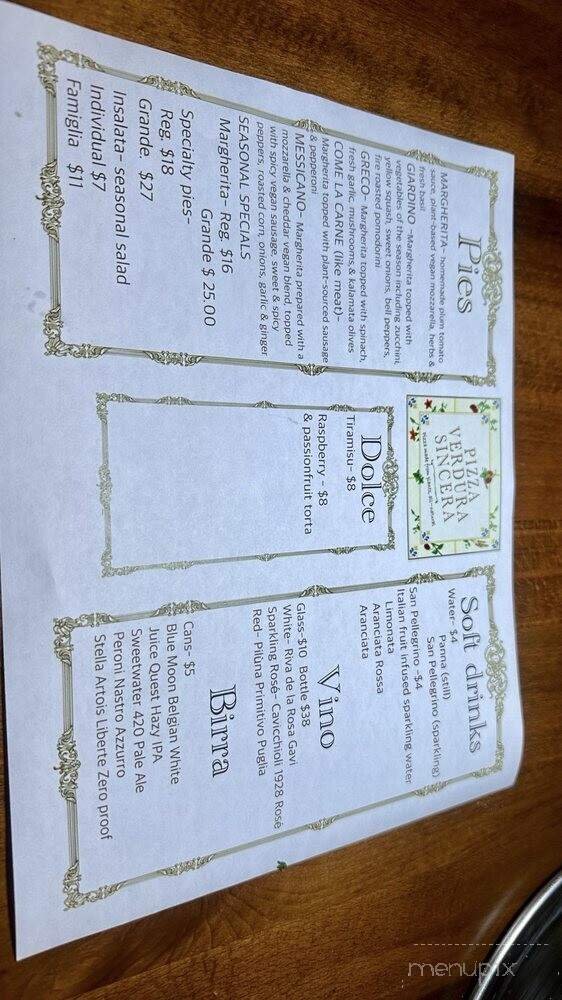 Pies
MARGHERITA– homemade plum tomato
sauce, plant-based vegan mozzarella, herbs &
fresh basil
GIARDINO –Margherita topped with
vegetables of the season including zucchini,
yellow squash, sweet onions, bell peppers,
fire roasted pomodorini
GRECO– Margherita topped with spinach,
fresh garlic, mushrooms, & kalamata olives
COME LA CARNE (like meat)–
Margherita topped with plant-sourced sausage
& pepperoni
MESSICANO– Margherita prepared with a
mozzarella & cheddar vegan blend, topped
with spicy vegan sausage, sweet & spicy
peppers, roasted corn, onions, garlic & ginger
SEASONAL SPECIALS
Margherita– Reg. $16
Grande $ 25.00
Specialty pies–
Reg. $18
Grande $27
Insalata– seasonal salad
Individual $7
Famiglia $11
PIZZA
VERDURA
SINCERA
Dolce
Tiramisu– $8
Raspberry – $8
& passionfruit torta
Soft drinks
Water– $4
Panna (still)
San Pellegrino (sparkling)
San Pellegrino –$4
Italian fruit infused sparkling water
Limonata
Aranciata Rossa
Aranciata
Vino
Glass–$10 Bottle $38
White– Riva de la Rosa Gavi
Sparkling Rosé– Cavicchioli 1928 Rosé
Red– Pilùna Primitivo Puglia
Birra
Cans– $5
Blue Moon Belgian White
Juice Quest Hazy IPA
Sweetwater 420 Pale Ale
Peroni Nastro Azzurro
Stella Artois Liberte Zero proof
menupix